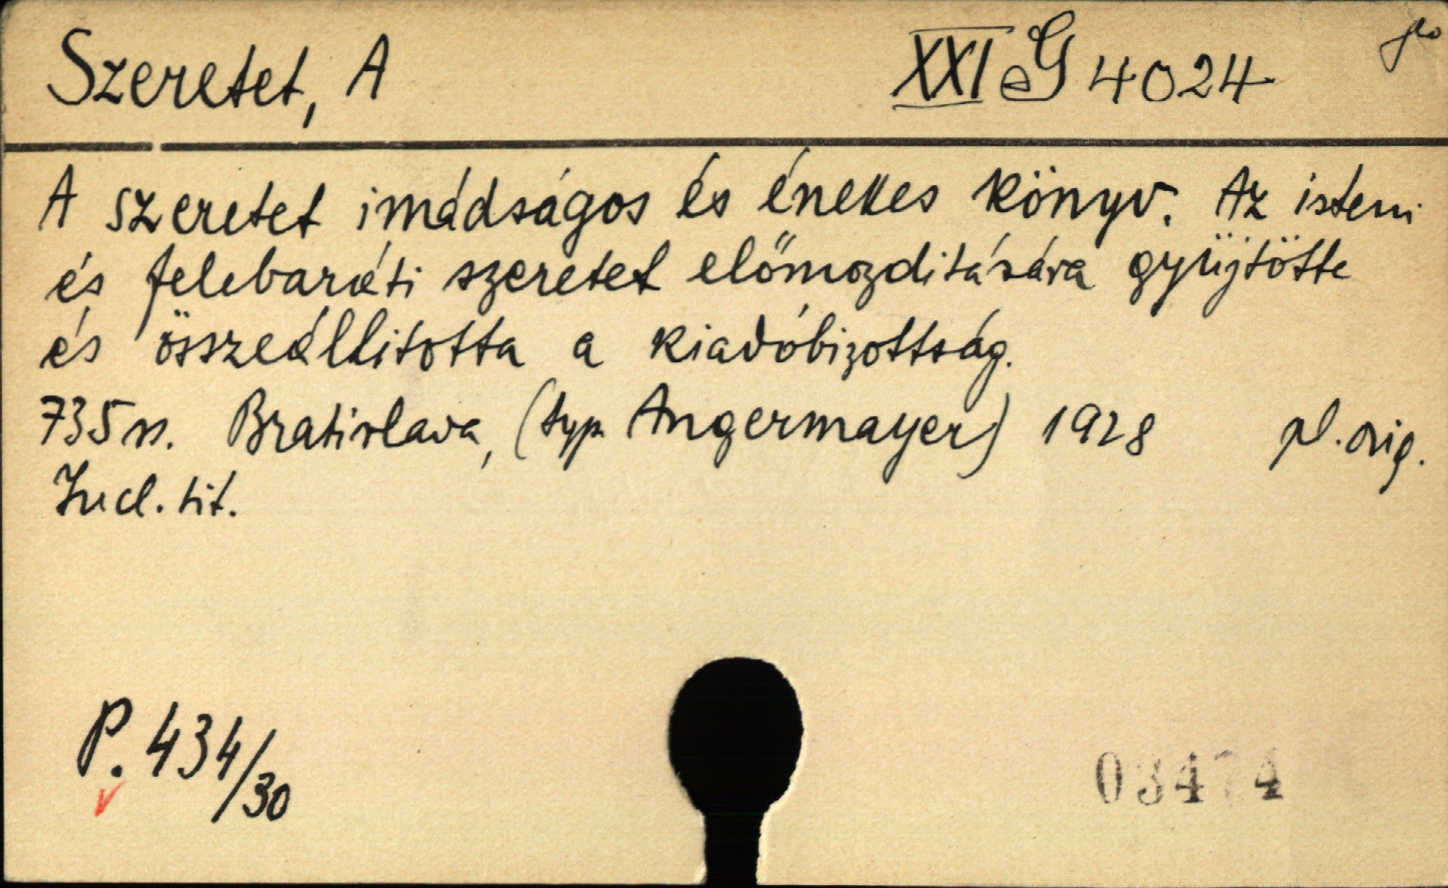 Szeretet, A XXI eG 4024
A szeretet imádságos és énekes könyv. Az isteni
és felebaráti szeretet előmozditására gyüjtötte
és összeállitotta a kiadóbizottság.
735 ss. Bratislava, (typ. Angermayer) 1928 pl. orig.
Incl. tit.
P. 434/30